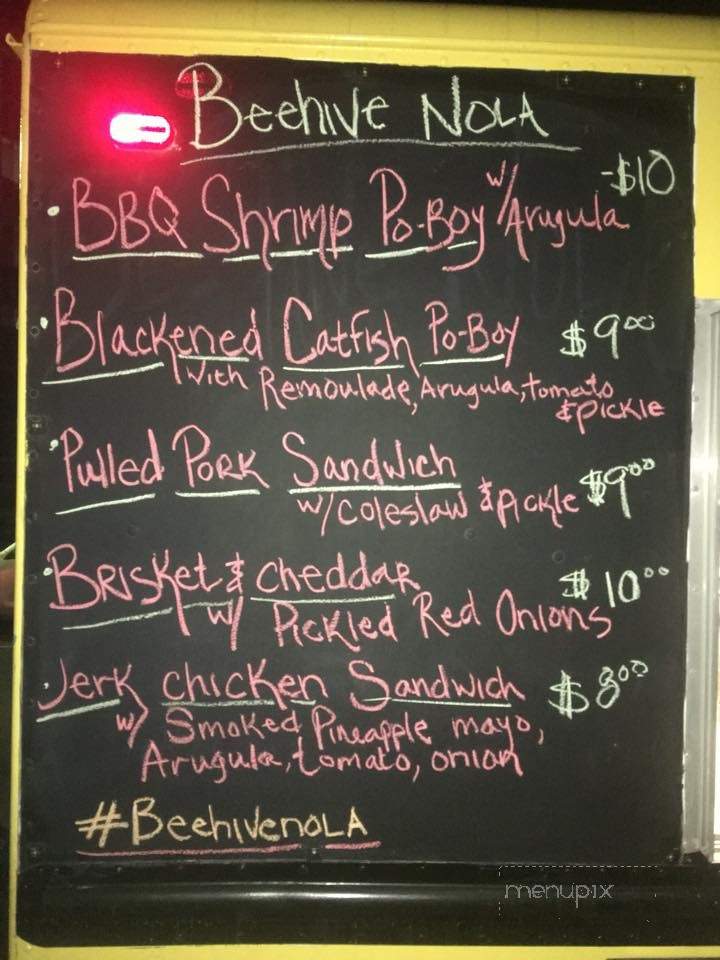 Beehive NOLA
-$10
• BBQ Shrimp Po-Boy w/ Arugula
• Blackened Catfish Po-Boy $9.00
with Remoulade, Arugula, tomato
& pickle
• Pulled Pork Sandwich $9.00
w/ coleslaw & pickle
• Brisket & cheddar $10.00
w/ Pickled Red Onions
• Jerk chicken Sandwich $8.00
w/ Smoked Pineapple mayo,
Arugula, tomato, onion
#Beehivenola
menupix